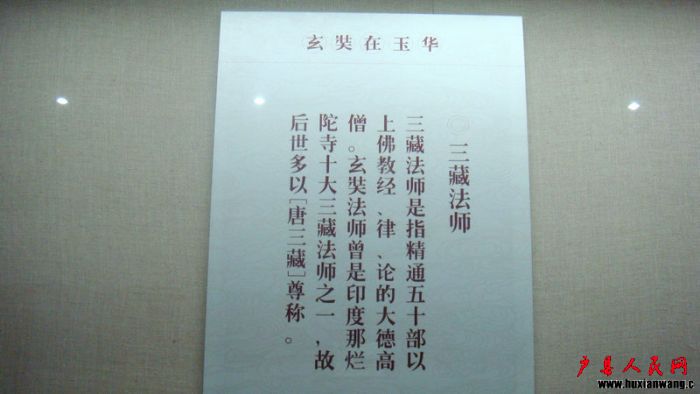 玄奘在玉华
三藏法师
三藏法师是指精通五十部以
上佛教经、律、论的大德高
僧。玄奘法师曾是印度那烂
陀寺十大三藏法师之一，故
后世多以[唐三藏]尊称。
户县人民网
www.huxianwang.c